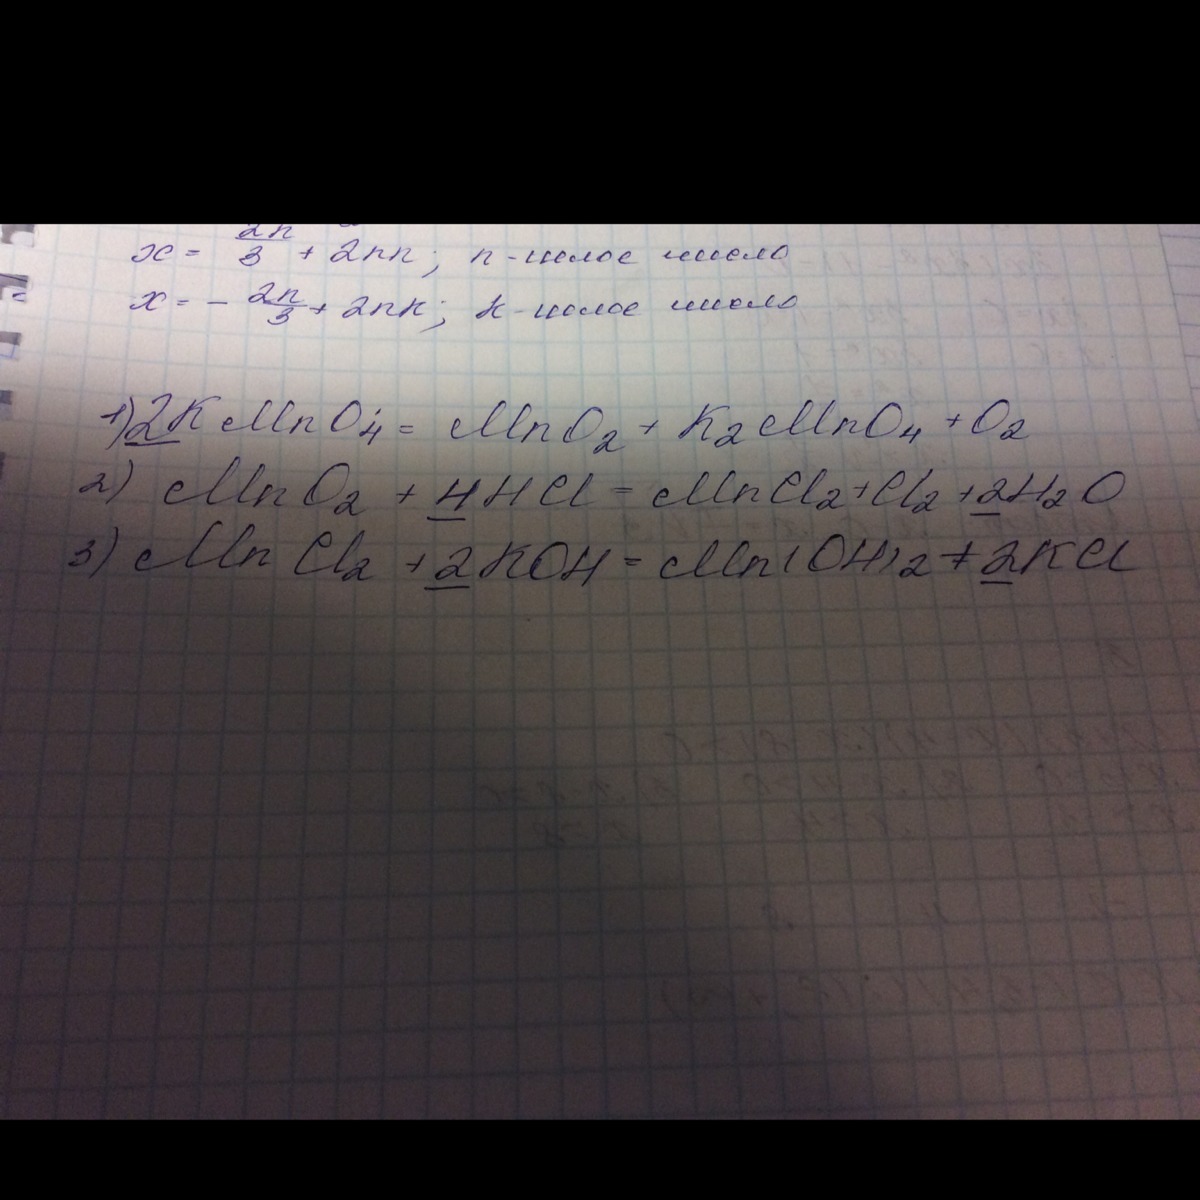 x = 2π/3 + 2πn; n - целое число
x = - 2π/3 + 2πk; k - целое число
1) 2KMnO4 = MnO2 + K2MnO4 + O2
2) MnO2 + 4HCl = MnCl2 + Cl2 + 2H2O
3) MnCl2 + 2KOH = Mn(OH)2 + 2KCl